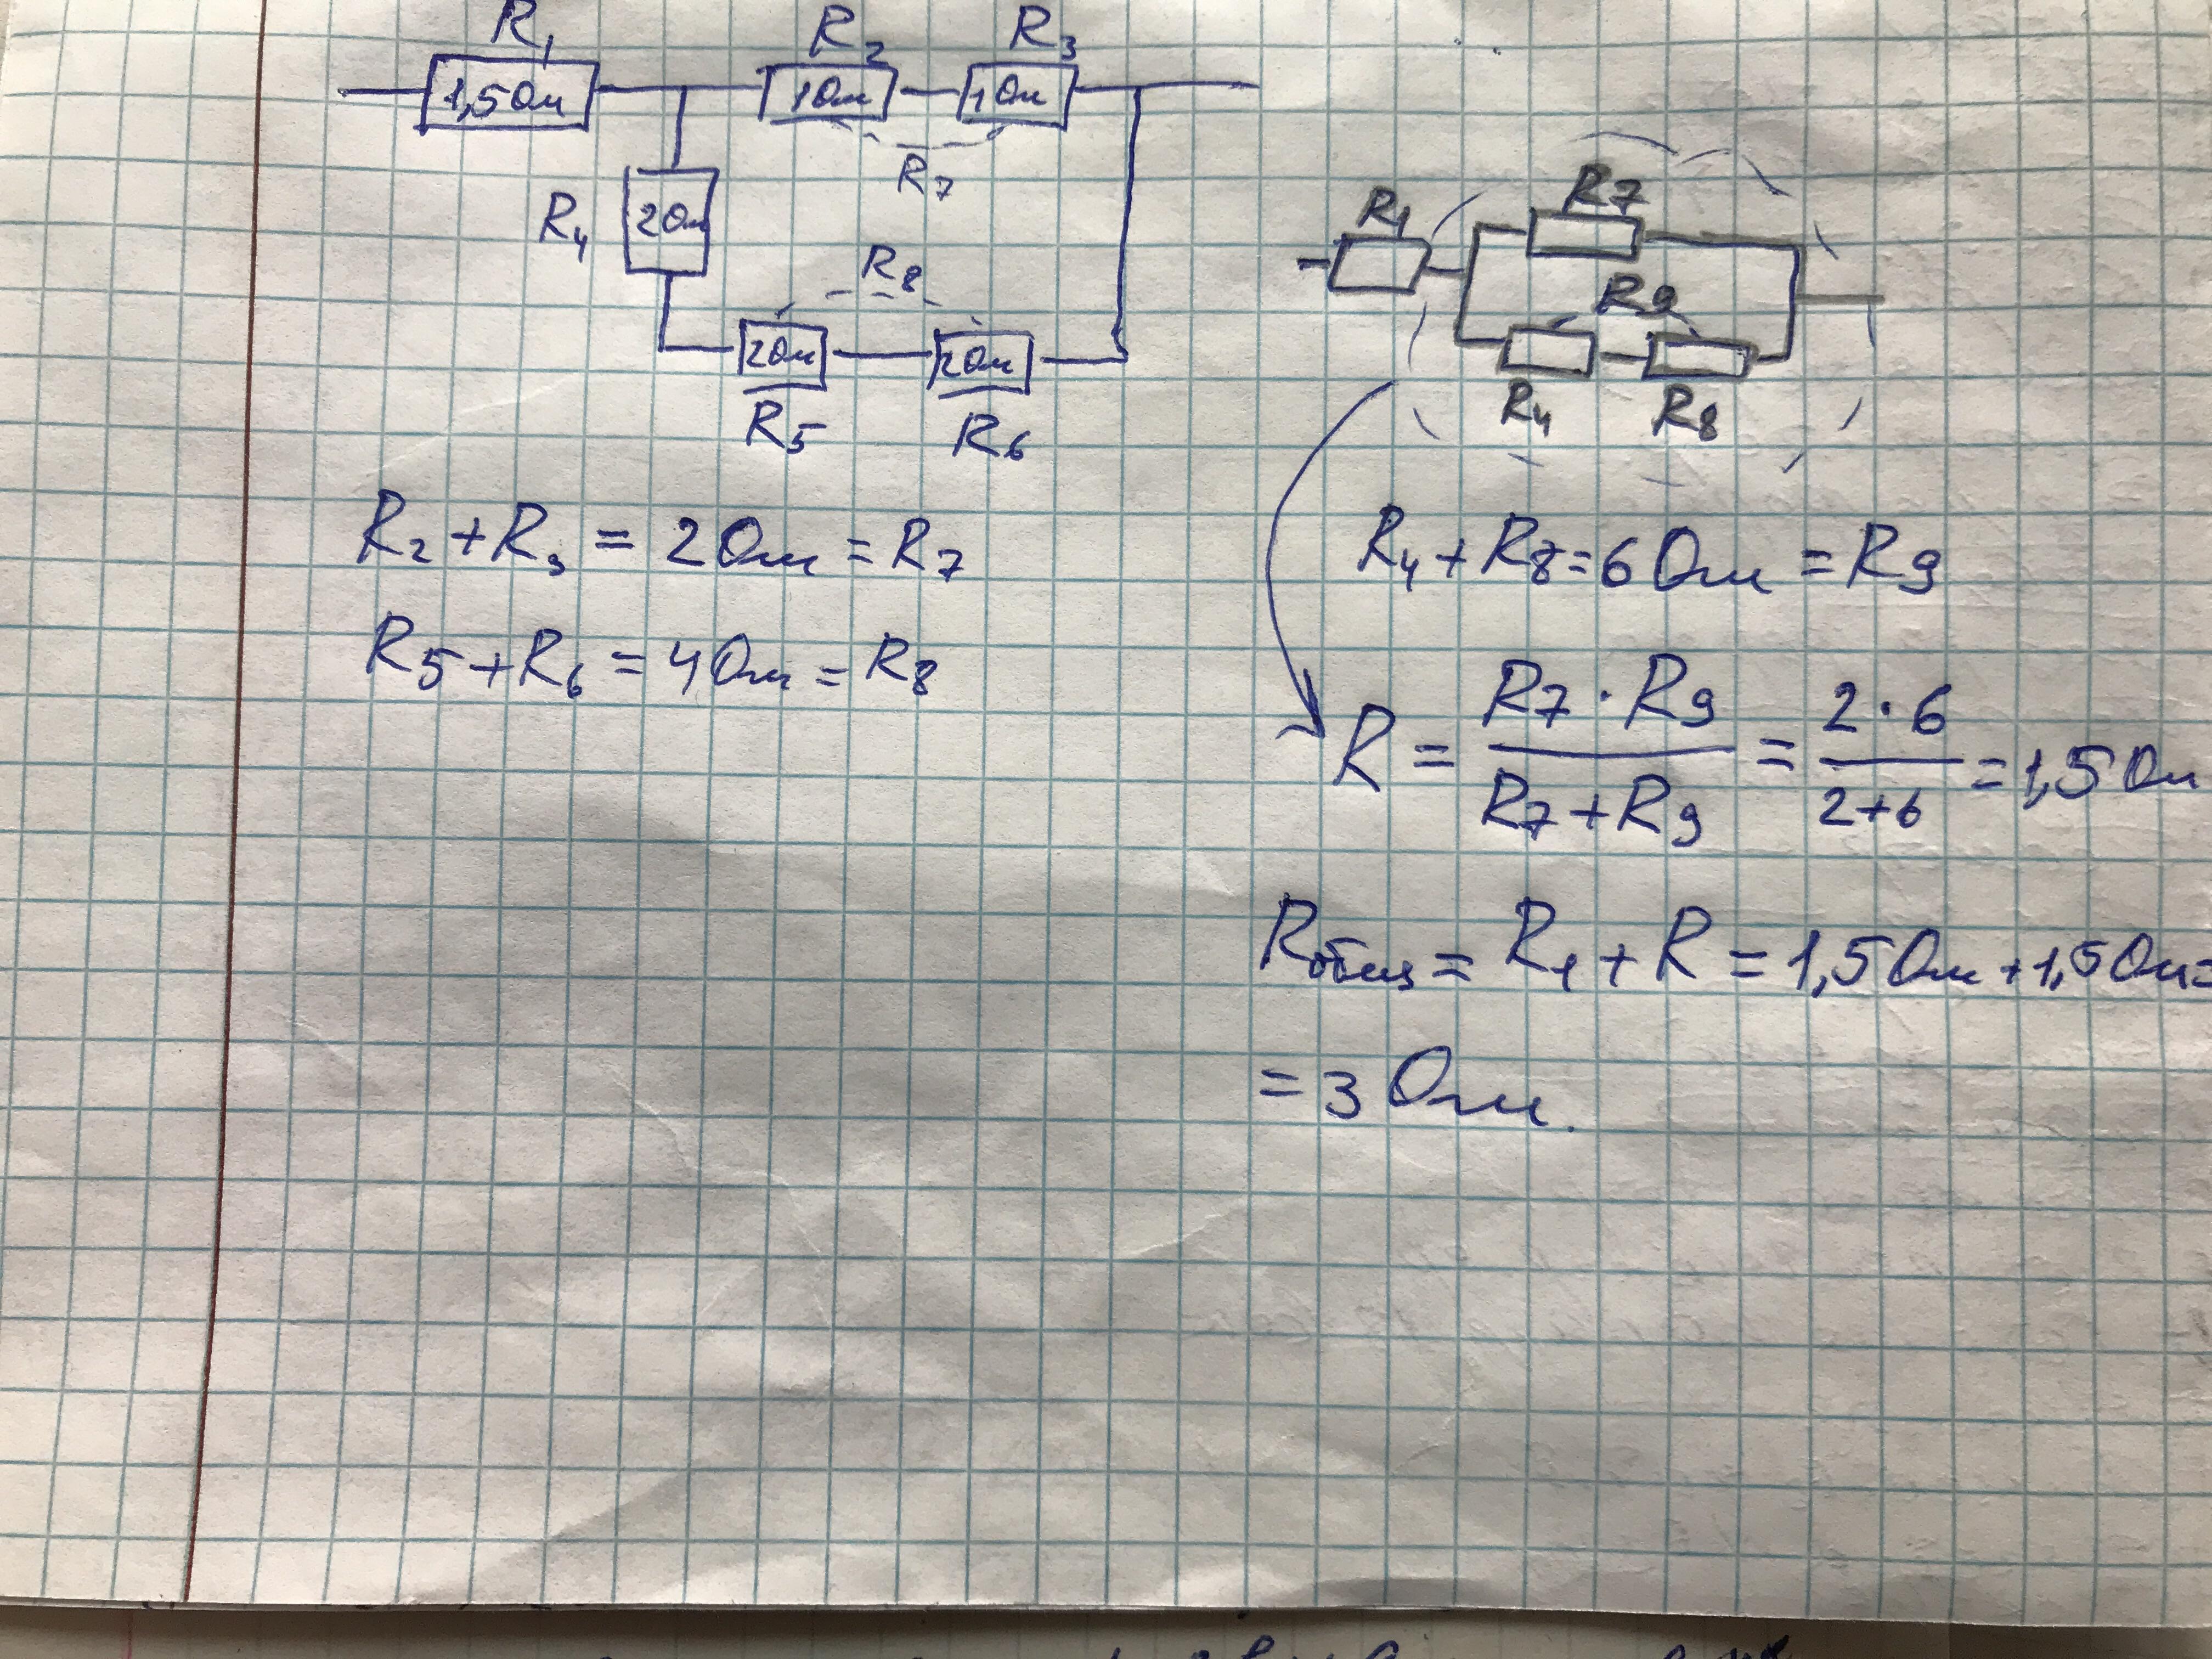 R₁ R₂ R₃
1,5 Ом 1 Ом 1 Ом
R₇
R₄ 2 Ом
R₈
2 Ом 2 Ом
R₅ R₆
R₁ R7
R9
R₄ R8
R₂ + R₃ = 2 Ом = R₇
R₅ + R₆ = 4 Ом = R₈
R₄ + R8 = 6 Ом = R9
R = R7 · R9 / R7 + R9 = 2 · 6 / 2 + 6 = 1,5 Ом
Rобщ = R₁ + R = 1,5 Ом + 1,5 Ом =
= 3 Ом.